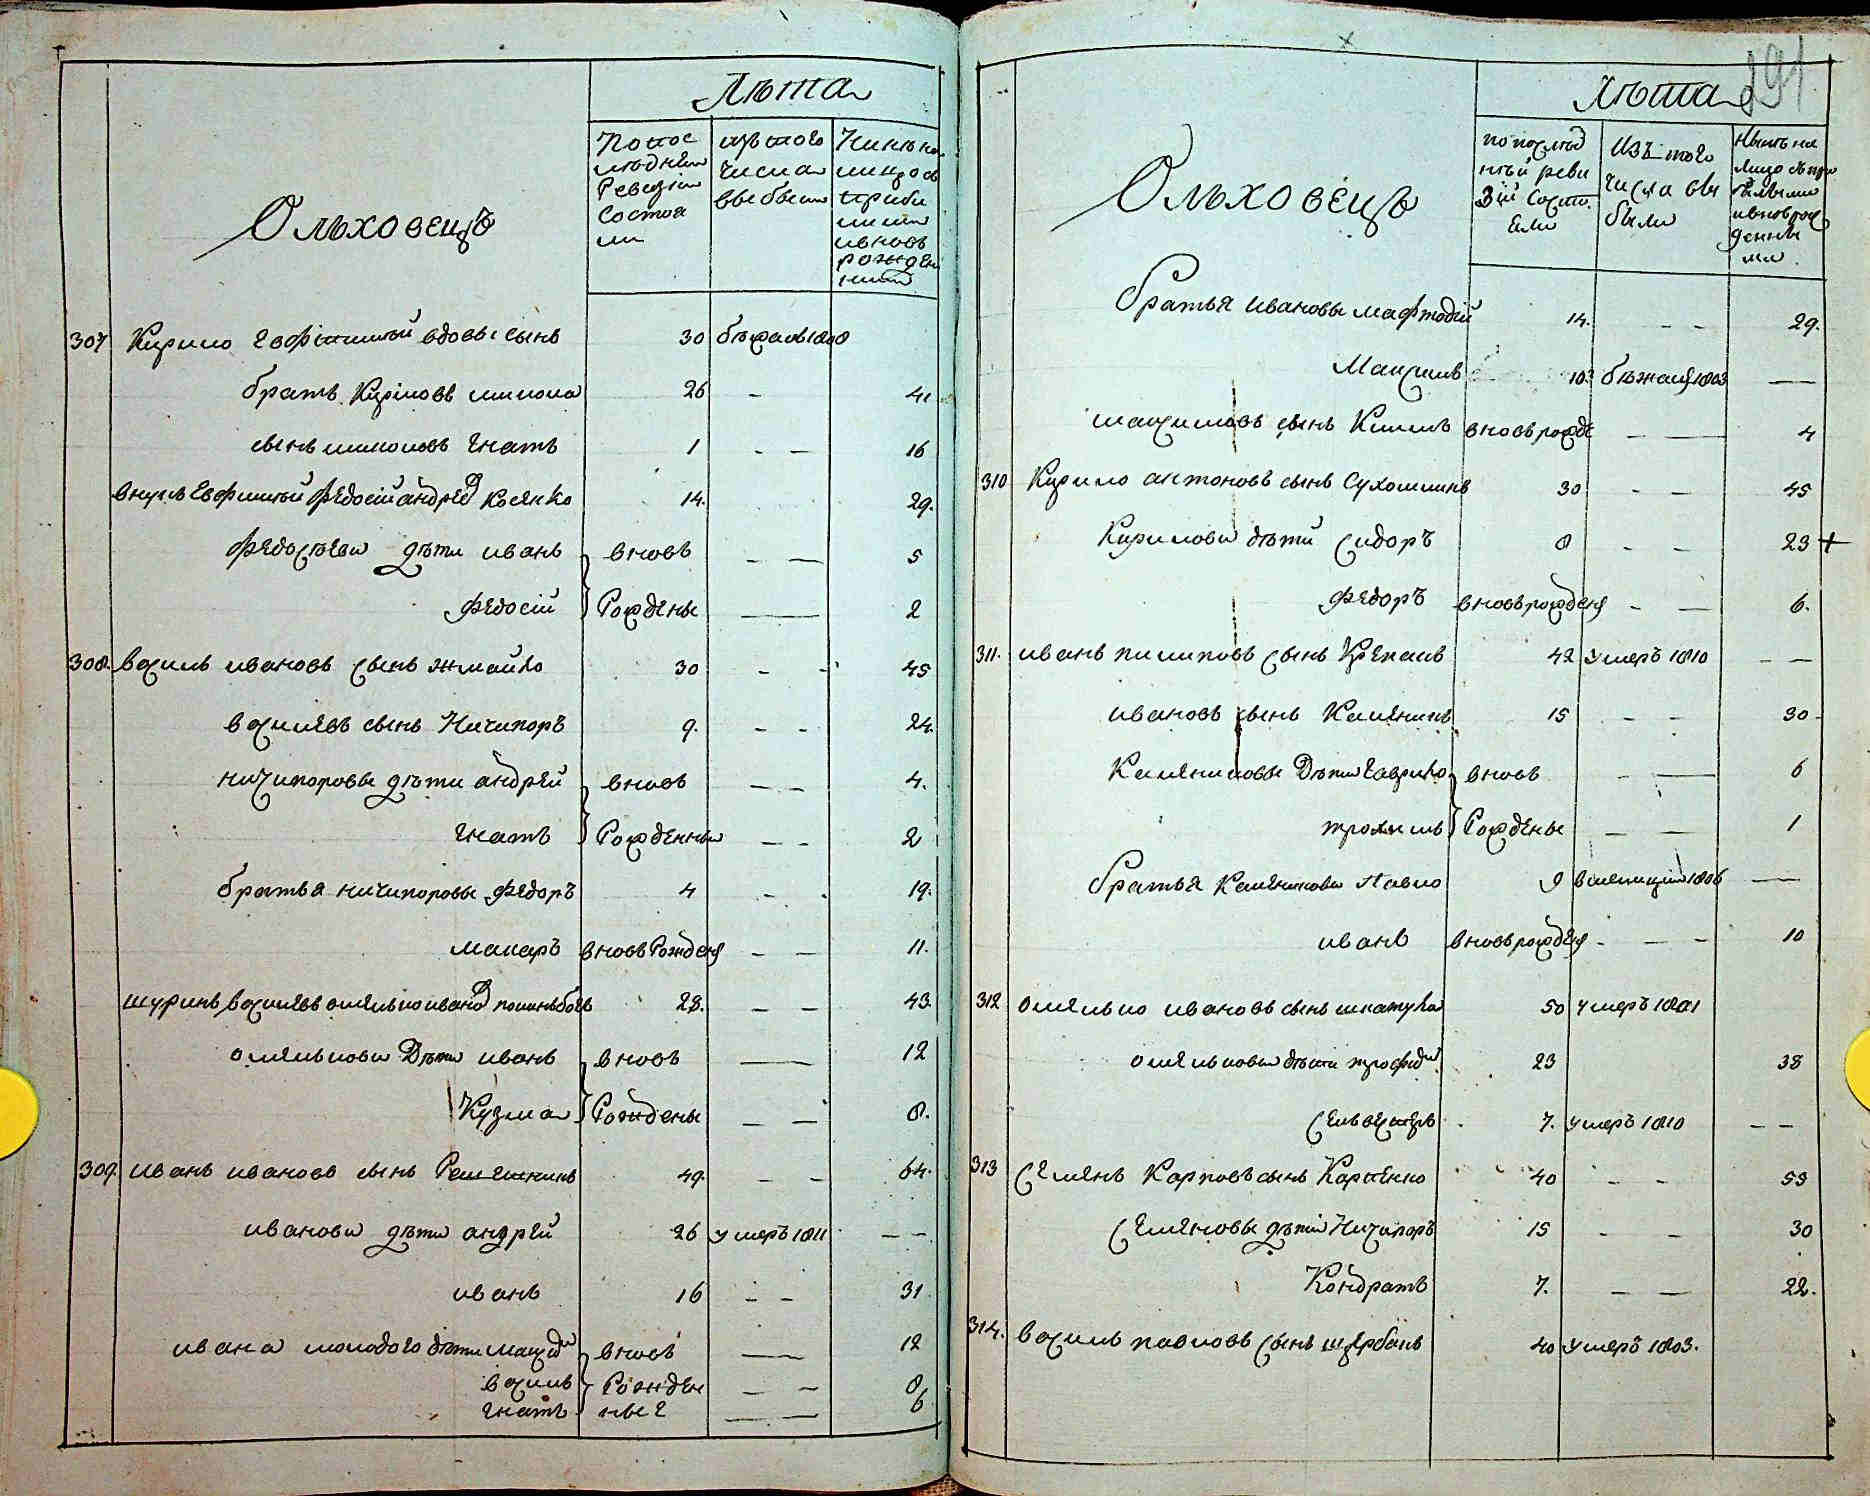 Ольховецъ
Лѣта
По пос
лѣдней
Ревизіи
состоя
ли
изъ того
числа
выбыли
Нинѣ на
лицо съ
приби
лими
и вновь
рожден
ними
307 Кирило Евфимiй вдовы сынъ 30 бѣжалъ 1808
братъ Кириловъ 26 - 41
сынъ Игнатъ 1 - - 16
внукъ Федосiй андреев Косенко 14. 29.
Федосѣеви дѣти иванъ вновь - - 5
Федосiй Рождены — 2
308. василь ивановъ сынъ жмайло 30 - - 45
василiевъ сынъ Ничипоръ 9. - - 24.
ничипоровы дѣти андрей вновь - - 4.
Игнатъ Рожденны - - 2
братья ничипоровы Федоръ 4 - - 19.
макаръ вновь Рожден - - 11.
шуринъ василiевъ омелько иванов 28. - - 43.
омелькови Дѣти иванъ вновь — 12
Кузма Рождены - - 8.
309. иванъ ивановъ сынъ 49. - - 64.
иванови дѣти андрей 26 умеръ 1811 - -
иванъ 16 - - 31.
ивана молодого дѣти вновь — 12
василь Рожден - - 8
Игнатъ ные — 6
291
Ольховецъ
Лѣта
по послѣд
нѣй реви
зiй состо
яли
Изъ того
числа вы
были
Нынѣ на
лицо съ при
былыми
и вновь рож
денны
ми
братья ивановы мафтодiй 14. - - 29.
Максимъ 10. бѣжалъ 1803 —
максимовъ сынъ Климъ вновь рожде - — 4
310 Кирило антоновъ сынъ Сухомлинъ 30 - - 45
Кирилови дѣти Сидоръ 8 - - 23 +
Федоръ вновь рожден - - 6.
311. иванъ пилиповъ сынъ 42 умеръ 1810 - -
ивановъ сынъ Каленикъ 15 - - 30
Калениковы Дѣти Гаврило вновь - — 6
трохимъ Рождены - — 1
братья Каленикови Павло 9 1806 —
иванъ вновь рожден - — 10
312 омелько ивановъ сынъ шкатула 50 умеръ 1801
омелькови дѣти 23 38
Селвестръ 7. умеръ 1810 - -
313 Семенъ Карповъ сынъ Карпенко 40 - - 55
Семеновы дѣти Ничипоръ 15 - - 30
Кондратъ 7. - - 22.
314. василь павловъ сынъ щербань 40 умеръ 1803.